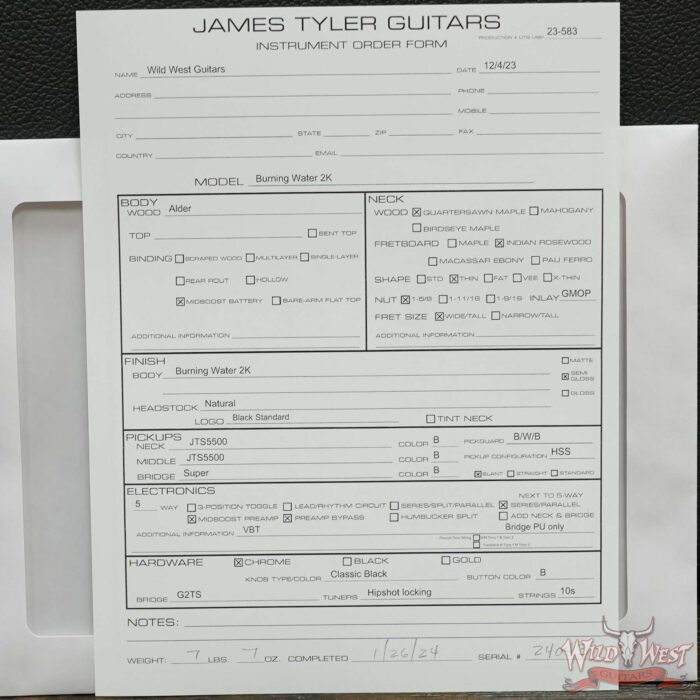 JAMES TYLER GUITARS
INSTRUMENT ORDER FORM
PRODUCTION # (JTG USE) 23-583
NAME Wild West Guitars DATE 12/4/23
ADDRESS PHONE
MOBILE
CITY STATE ZIP FAX
COUNTRY EMAIL
MODEL Burning Water 2K
BODY
WOOD Alder
TOP ☐ BENT TOP
BINDING ☐ SCRAPED WOOD ☐ MULTILAYER ☐ SINGLE-LAYER
☐ REAR ROUT ☐ HOLLOW
☒ MIDBOOST BATTERY ☐ BARE-ARM FLAT TOP
ADDITIONAL INFORMATION
NECK
WOOD ☒ QUARTERSAWN MAPLE ☐ MAHOGANY
☐ BIRDSEYE MAPLE
FRETBOARD ☐ MAPLE ☒ INDIAN ROSEWOOD
☐ MACASSAR EBONY ☐ PAU FERRO
SHAPE ☐ STD ☒ THIN ☐ FAT ☐ VEE ☐ X-THIN
NUT ☒ 1-5/8 ☐ 1-11/16 ☐ 1-9/16 INLAY GMOP
FRET SIZE ☒ WIDE/TALL ☐ NARROW/TALL
ADDITIONAL INFORMATION
FINISH ☐ MATTE
BODY Burning Water 2K ☒ SEMI GLOSS
☐ GLOSS
HEADSTOCK Natural
LOGO Black Standard ☐ TINT NECK
PICKUPS
NECK JTS5500 COLOR B PICKGUARD B/W/B
MIDDLE JTS5500 COLOR B PICKUP CONFIGURATION HSS
BRIDGE Super COLOR B ☒ SLANT ☐ STRAIGHT ☐ STANDARD
ELECTRONICS NEXT TO 5-WAY
5 WAY ☐ 3-POSITION TOGGLE ☐ LEAD/RHYTHM CIRCUIT ☐ SERIES/SPLIT/PARALLEL ☒ SERIES/PARALLEL
☒ MIDBOOST PREAMP ☒ PREAMP BYPASS ☐ HUMBUCKER SPLIT ☐ ADD NECK & BRIDGE
ADDITIONAL INFORMATION VBT Bridge PU only
HARDWARE ☒ CHROME ☐ BLACK ☐ GOLD
KNOB TYPE/COLOR Classic Black BUTTON COLOR B
BRIDGE G2TS TUNERS Hipshot locking STRINGS 10s
NOTES:
WEIGHT: 7 LBS. 7 OZ. COMPLETED 1/26/24 SERIAL # 240
WILD WEST
GUITARS